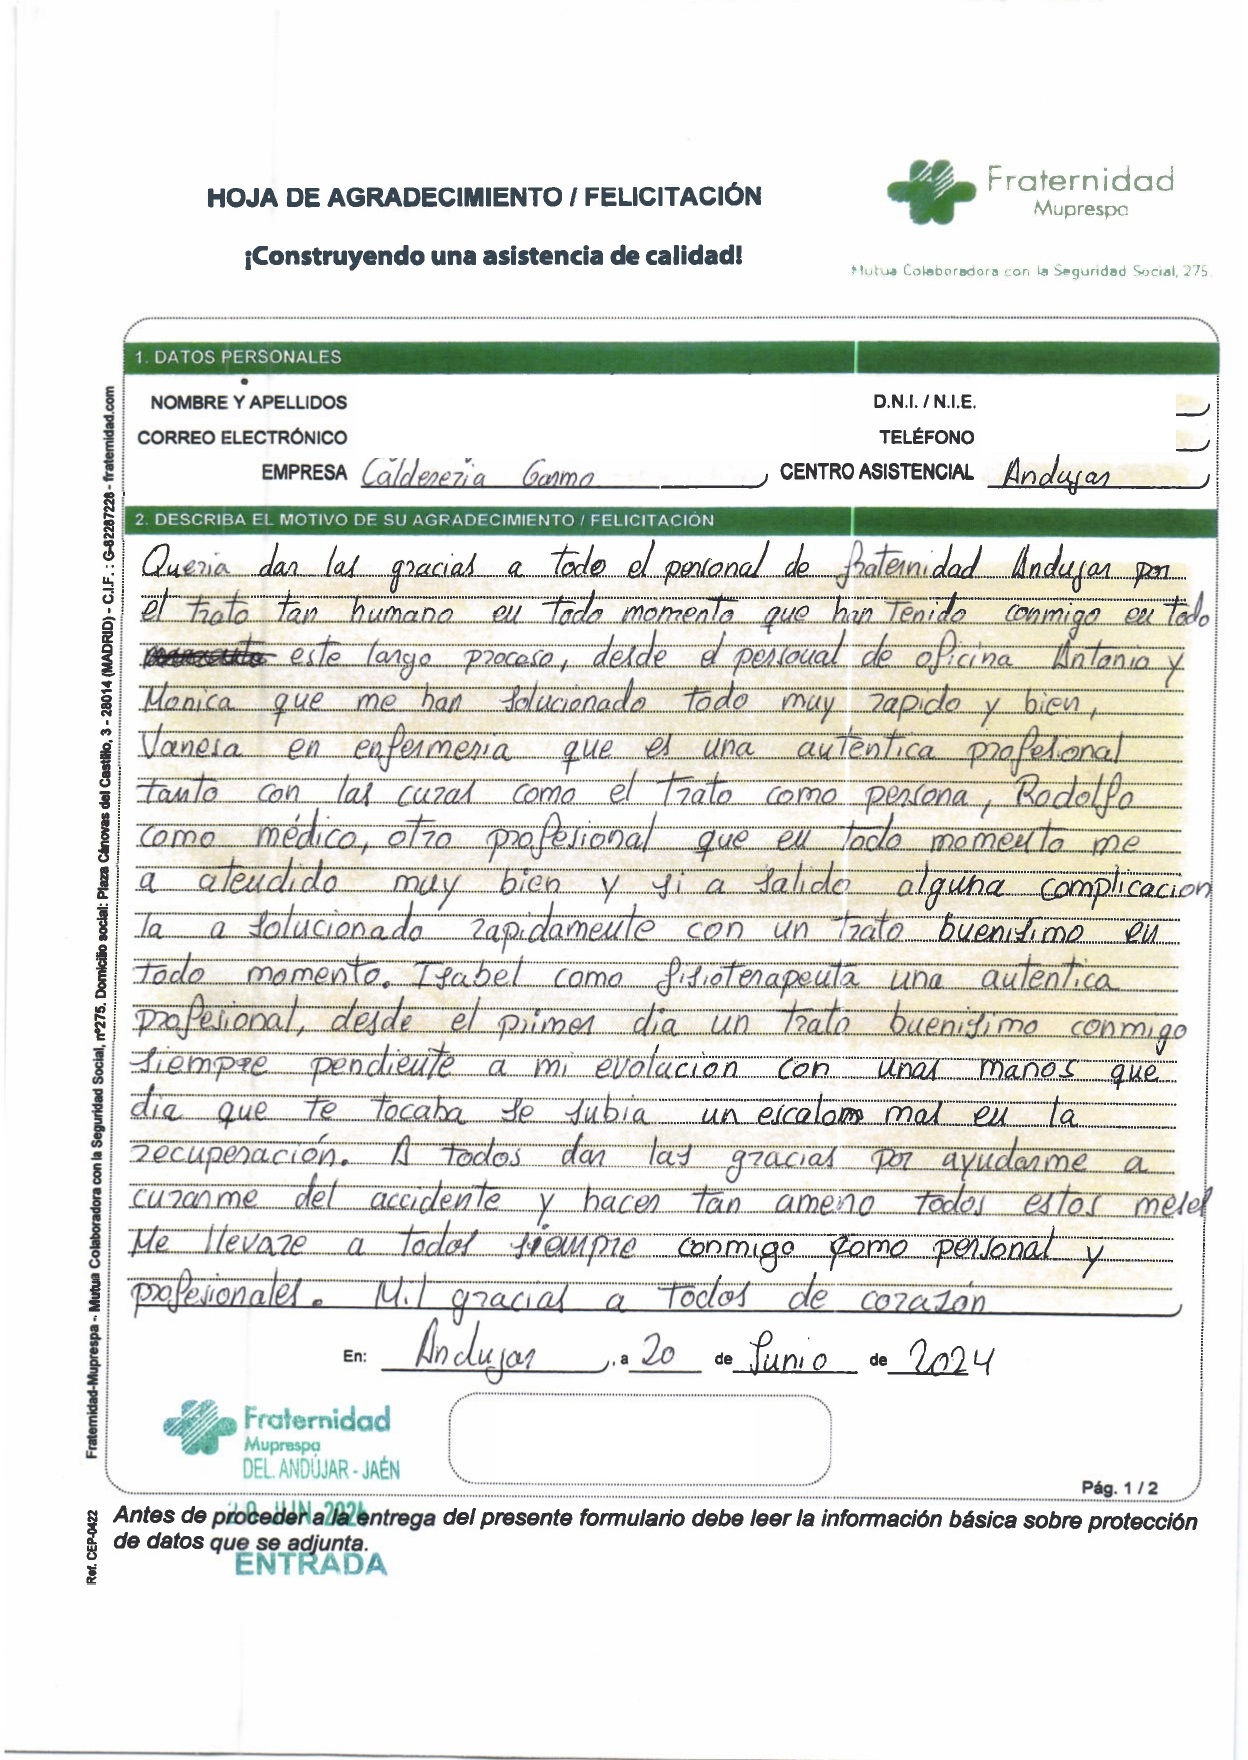 HOJA DE AGRADECIMIENTO / FELICITACIÓN
¡Construyendo una asistencia de calidad!
Fraternidad
Muprespa
Mutua Colaboradora con la Seguridad Social, 275.
1. DATOS PERSONALES
NOMBRE Y APELLIDOS D.N.I. / N.I.E.
CORREO ELECTRÓNICO TELÉFONO
EMPRESA Caldereria Garmo CENTRO ASISTENCIAL Andujar
2. DESCRIBA EL MOTIVO DE SU AGRADECIMIENTO / FELICITACIÓN
Queria dar las gracias a todo el personal de fraternidad Andujar por
el trato tan humano en todo momento que han tenido conmigo en todo
este largo proceso, desde el personal de oficina Antonio y
Monica que me han solucionado todo muy rapido y bien,
Vanesa en enfermeria que es una autentica profesional
tanto con las curas como el trato como persona, Rodolfo
como médico, otro profesional que en todo momento me
a atendido muy bien y si a salido alguna complicacion
la a solucionado rapidamente con un trato buenisimo en
todo momento. Isabel como fisioterapeuta una autentica
profesional, desde el primer dia un trato buenisimo conmigo
siempre pendiente a mi evolucion con unas manos que
dia que te tocaba se subia un escalom mas en la
recuperación. A todos dar las gracias por ayudarme a
curarme del accidente y hacer tan ameno todos estos meses
Me llevare a todos siempre conmigo como personal y
profesionales. Mil gracias a todos de corazón
En: Andujar, a 20 de Junio de 2024
Fraternidad
Muprespa
DEL. ANDÚJAR - JAÉN
JUN. 2024
ENTRADA
Pág. 1 / 2
Antes de proceder a la entrega del presente formulario debe leer la información básica sobre protección
de datos que se adjunta.
Fraternidad-Muprespa - Mutua Colaboradora con la Seguridad Social, nº275. Domicilio social: Plaza Cánovas del Castillo, 3 - 28014 (MADRID) - C.I.F. : G-82287228 - fraternidad.com
Ref. CEP-0422